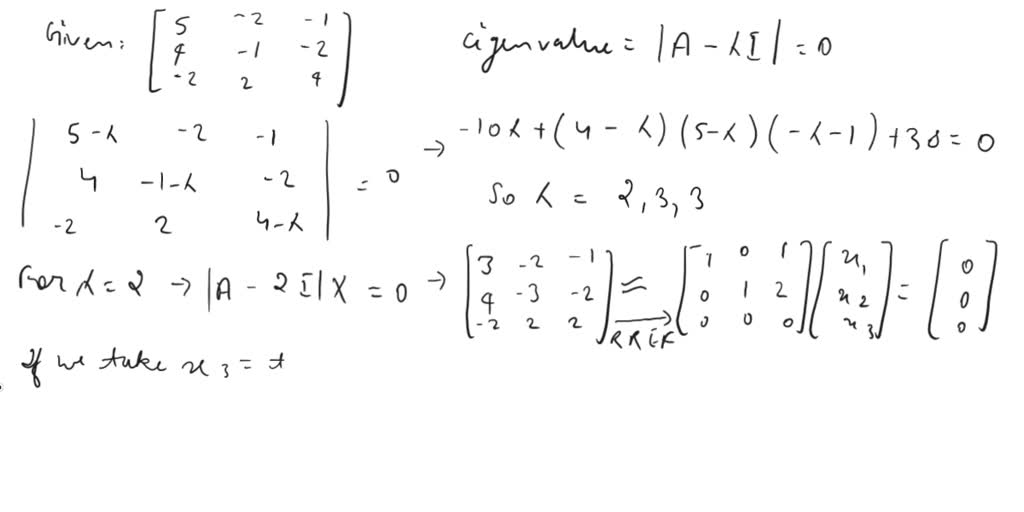 Given: [ 5 -2 -1 ; 4 -1 -2 ; -2 2 4 ]
eigenvalue = |A - λI| = 0
| 5-λ -2 -1 ; 4 -1-λ -2 ; -2 2 4-λ | = 0
→ -10λ + (4 - λ)(5-λ)(-λ-1) + 38 = 0
So λ = 2, 3, 3
For λ = 2 → |A - 2I| X = 0 → [ 3 -2 -1 ; 4 -3 -2 ; -2 2 2 ] ≈ RREF → [ 1 0 1 ; 0 1 2 ; 0 0 0 ] ( x1 ; x2 ; x3 ) = [ 0 ; 0 ; 0 ]
If we take x3 = t